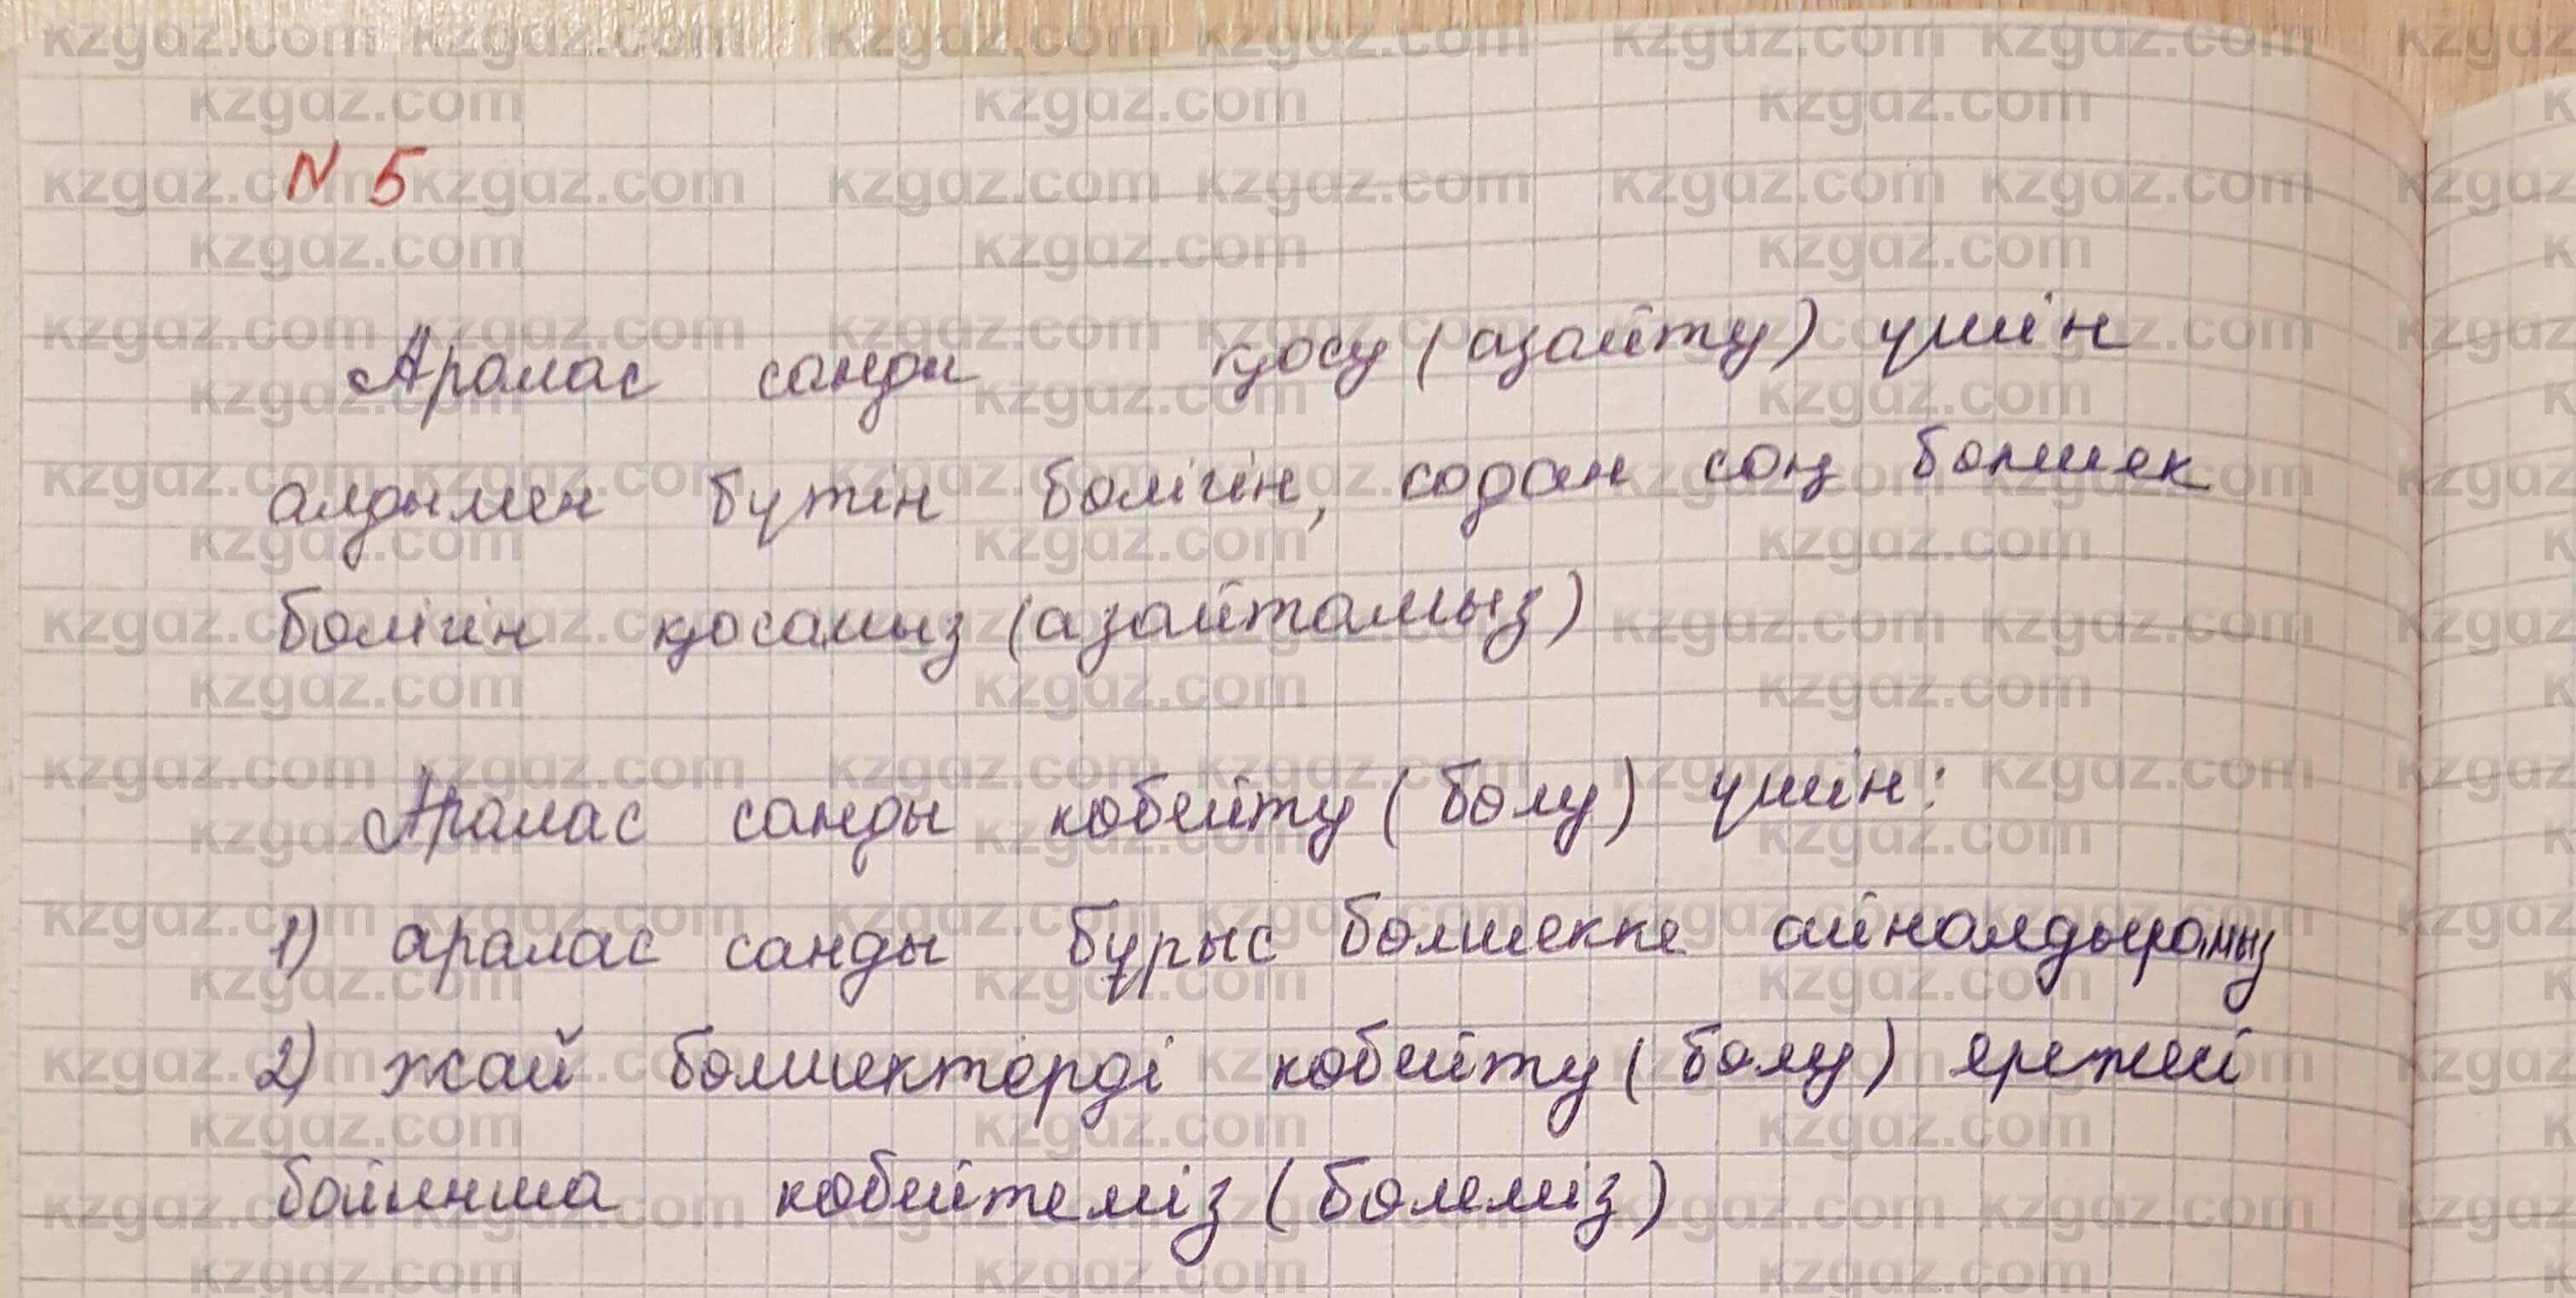 N 5
Аралас санды қосу (азайту) үшін
алдымен бүтін бөлігін, содан соң бөлшек
бөлігін қосамыз (азайтамыз)
Аралас санды көбейту (бөлу) үшін:
1) аралас санды бұрыс бөлшекке айналдырамыз
2) жай бөлшектерді көбейту (бөлу) ережесі
бойынша көбейтеміз (бөлеміз)
kzgdz.com